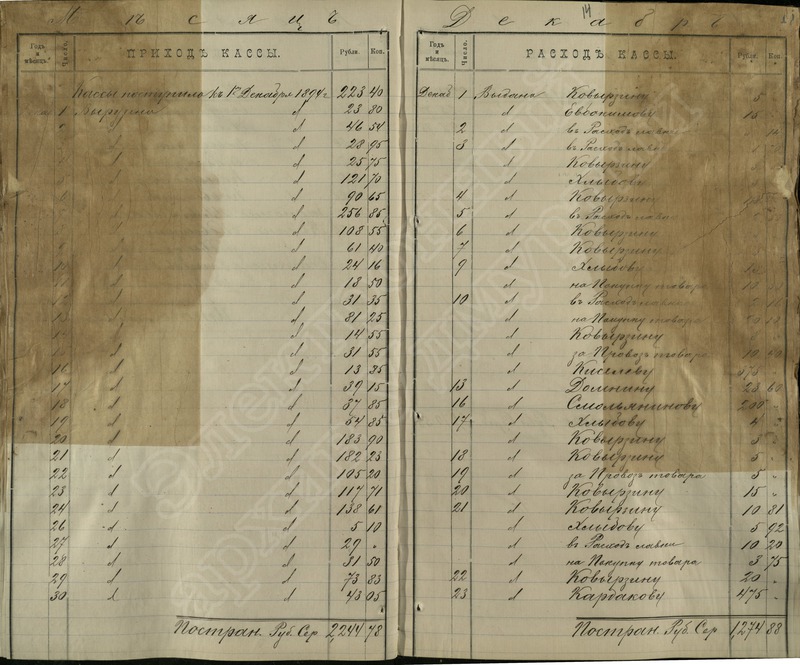 Мѣсяцъ
Годъ и мѣсяцъ. Число. ПРИХОДЪ КАССЫ. Рубли. Коп.
Кассы поступило къ 1му Декабря 1894 г 223 40
1 Выручка d 23 80
d 46 54
d 28 95
d 25 75
d 121 70
d 90 65
d 256 85
d 108 55
d 61 40
10 d 24 16
11 d 18 50
12 d 31 35
13 d 81 25
14 d 14 55
15 d 31 55
16 d d 13 85
17 d d 39 15
18 d d 37 85
19 d d 54 85
20 d d 183 90
21 d d 182 23
22 d d 105 20
23 d d 117 71
24 d d 138 61
26 d d 5 10
27 d d 29 "
28 d d 31 50
29 d d 73 83
30 d d 43 05
Постран. Руб. Сер 2,244 78
14
Декабрь
Годъ и мѣсяцъ. Число. РАСХОДЪ КАССЫ. Рубли. Коп.
Декаб 1 Выдано Ковырзину 5
d Евдокимову 15
2 d въ Расходъ лавки
3 d въ Расходъ лавки
d Ковырзину
d Хлыбову
4 d Ковырзину
5 d въ Расходъ лавки
6 d Ковырзину
7 d Ковырзину
9 d Хлыбову
d на Покупку товара
10 d въ Расходъ лавки
d на Покупку товара
d Ковырзину
d за Провозъ товара 10
d Киселеву 575
13 d Домнину 23 60
16 d Смольянинову 200 "
17 d Хлыбову 4 "
d Ковырзину 5 "
18 d Ковырзину 5 "
19 d за Провозъ товара 5 "
20 d Ковырзину 15 "
21 d Ковырзину 10 81
d Хлыбову 5 92
d въ Расходъ лавки 10 20
d на Покупку товара 3 75
22 d Ковырзину 20 "
23 d Кардакову 475 "
Постран. Руб. Сер 1,274 88